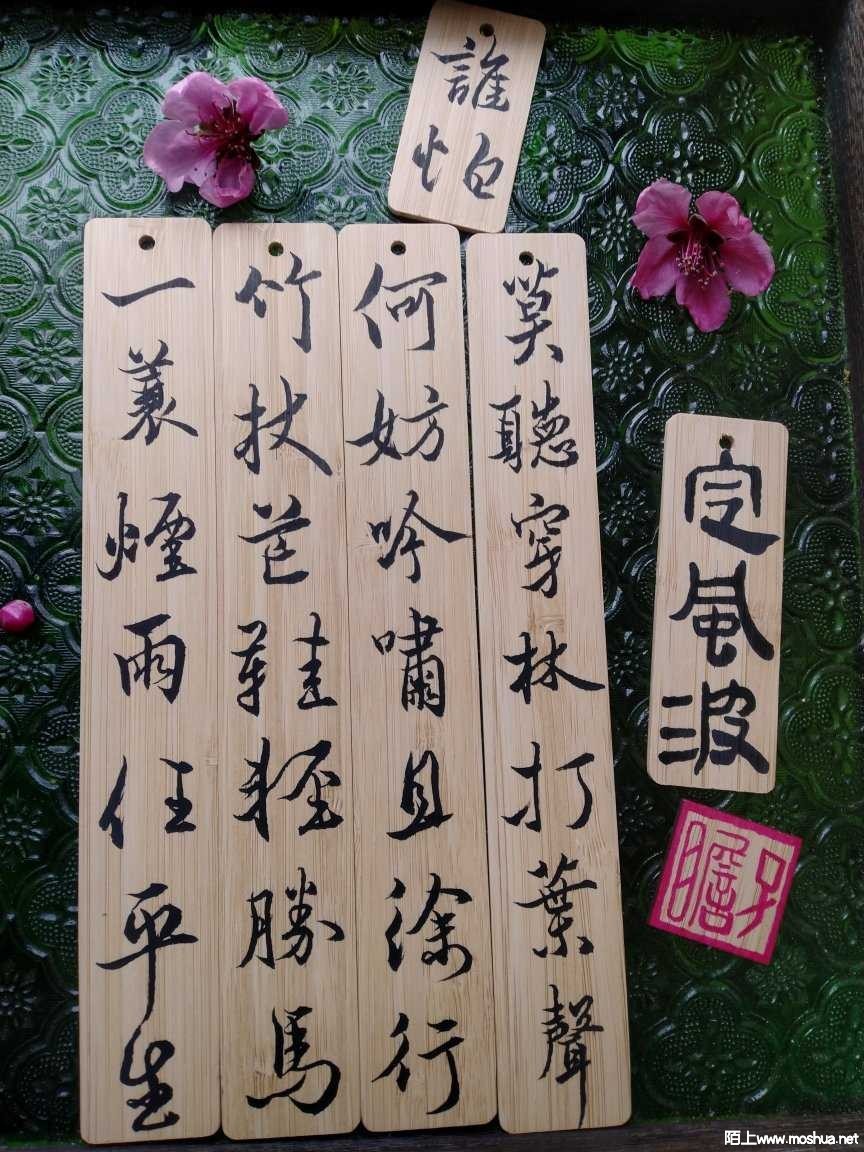 定風波
莫聽穿林打葉聲
何妨吟嘯且徐行
竹杖芒鞋輕勝馬
誰怕
一蓑煙雨任平生
子瞻
陌上www.moshua.net